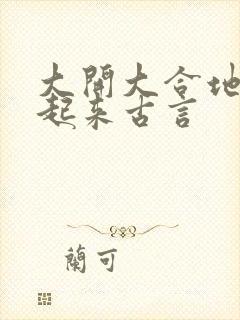 大開大合地
起来古言
蘭可